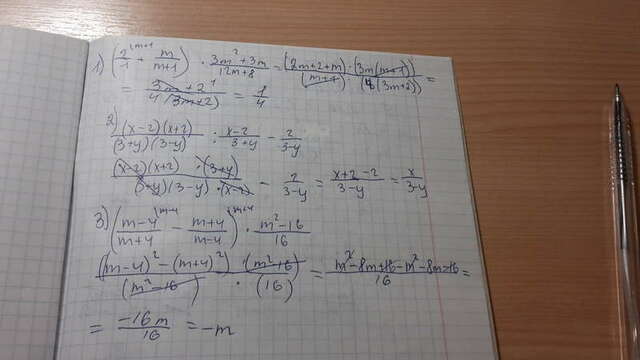 1) (2/1 + m/m+1) · 3m²+3m/12m+8 = (2m+2+m)·3m(m+1)/(m+1)·4(3m+2) =
= 3m+2/4(3m+2) = /4
2) (x-2)(x+2)/(3+y)(3-y) : x-2/3+y - 2/3-y
(x-2)(x+2)·(3+y)/(3+y)(3-y)·(x-2) - 2/3-y = x+2-2/3-y = x/3-y
3) (m-4/m+4 - m+4/m-4) · m²-16/16
(m-4)²-(m+4)²/(m²-16) · (m²-16)/(16) = m²-8m+16-m²-8m-16/16 =
= -16m/16 = -m